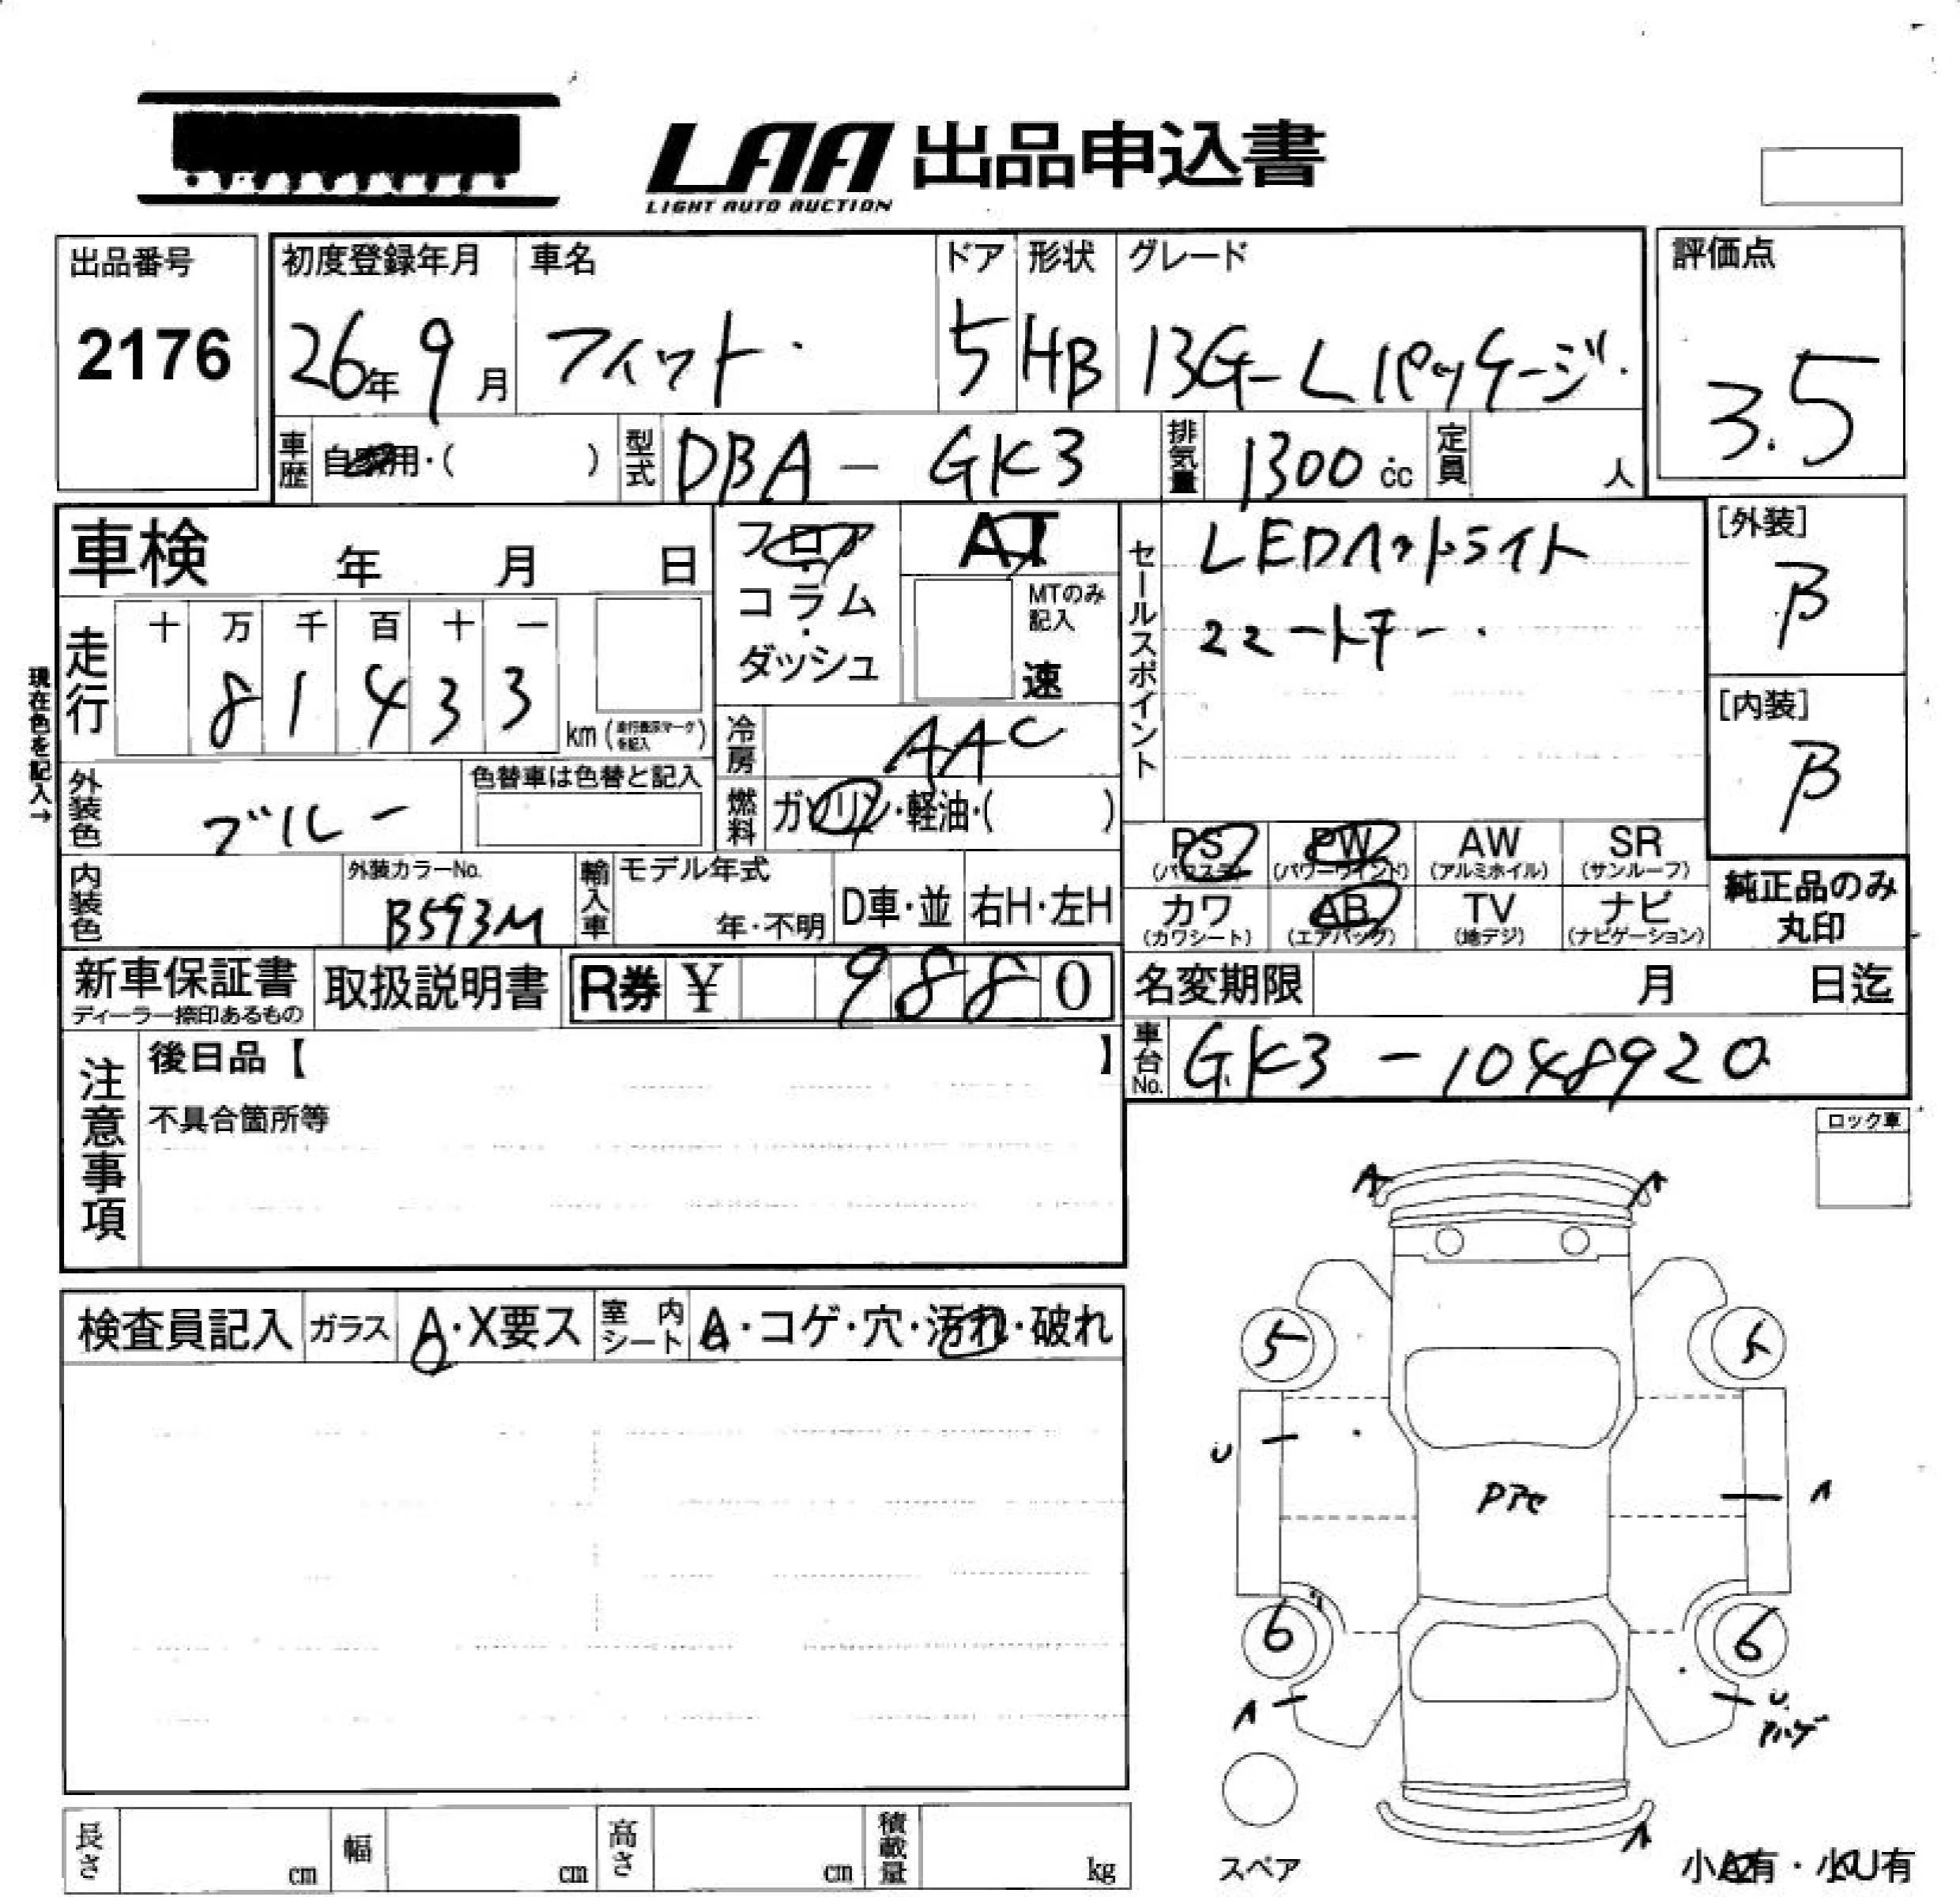 LAA 出品申込書
LIGHT AUTO AUCTION
出品番号
2176
初度登録年月
26年 9月
車名
フィット
ドア
5
形状
HB
グレード
13G-Lパッケージ
評価点
3.5
車歴 自家用・( )
型式 DBA-GK3
排気量 1300cc
定員 人
車検 年 月 日
現在色を記入→
走行
十 万 千 百 十 一
8 1 4 3 3
km (走行表示マークを記入)
フロア・コラム・ダッシュ
AT
MTのみ記入
速
冷房 AAC
燃料 ガソリン・軽油・( )
セールスポイント
LEDヘッドライト
[外装]
B
[内装]
B
外装色 ブルー
色替車は色替と記入
内装色
外装カラーNo.
B593M
輸入車
モデル年式
年・不明
D車・並
右H・左H
PS
(パワステ)
PW
(パワーウインド)
AW
(アルミホイル)
SR
(サンルーフ)
カワ
(カワシート)
AB
(エアバッグ)
TV
(地デジ)
ナビ
(ナビゲーション)
純正品のみ
丸印
新車保証書
ディーラー捺印あるもの
取扱説明書
R券 ¥ 9880
名変期限 月 日迄
車台No. GK3-1048920
注意事項
後日品【 】
不具合箇所等
ロック車
検査員記入
ガラス A・X要ス
室内シート A・コゲ・穴・汚れ・破れ
A
A
5
5
U
A
Pアセ
6
6
A
U
スペア
A
小A有・小U有
長さ cm
幅 cm
高さ cm
積載量 kg